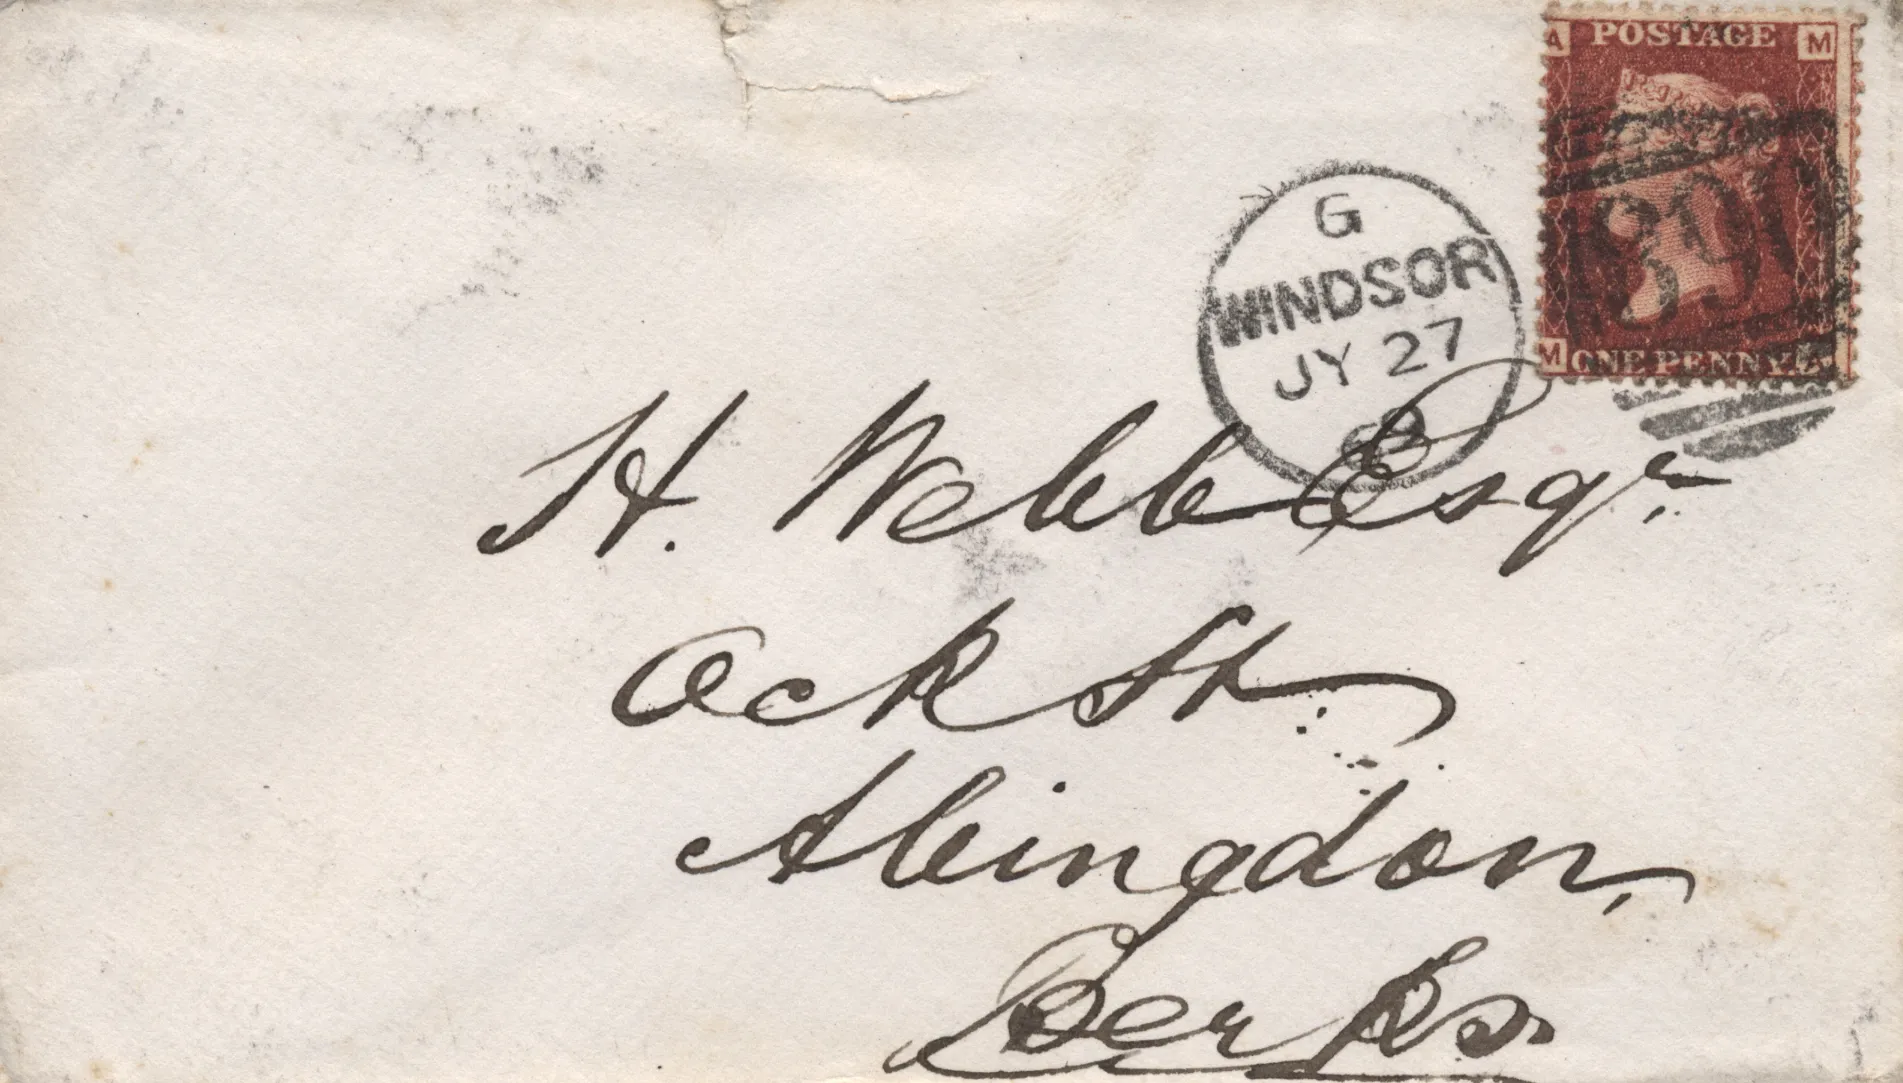 A POSTAGE M
M ONE PENNY. A
G
WINDSOR
JY 27
H. Webb Esqr.
Ock St.
Abingdon,
Berks